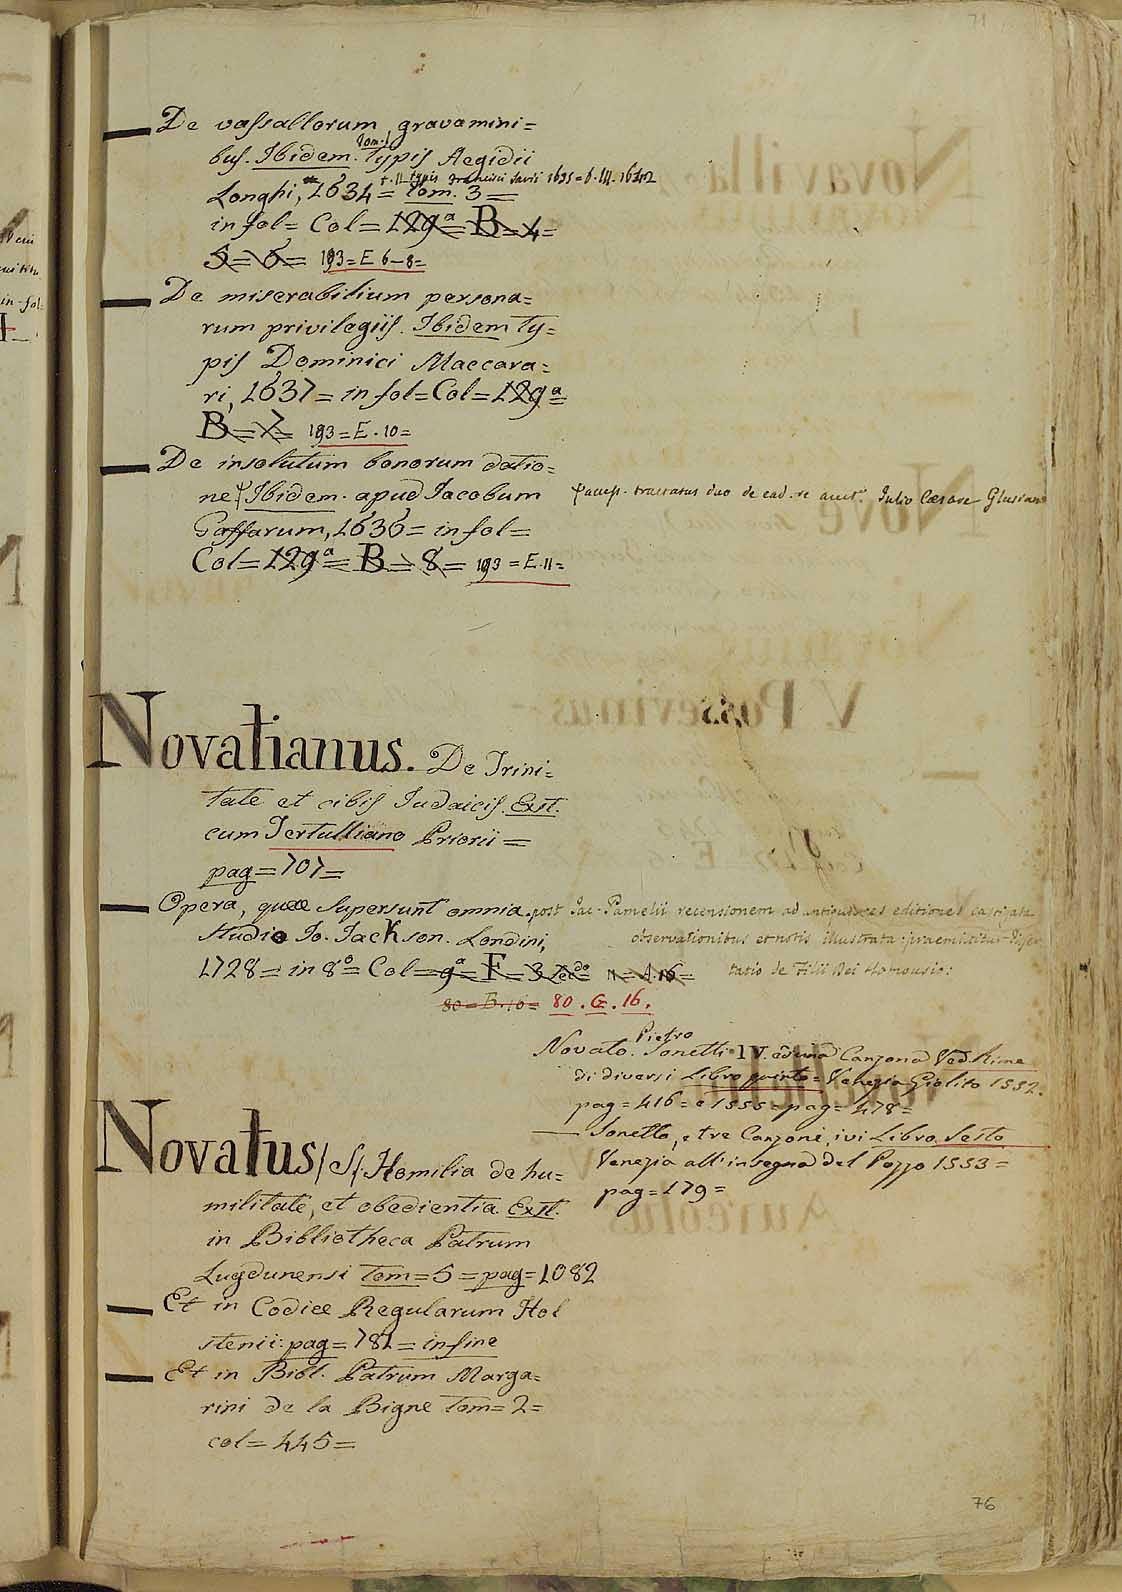 71
— De vassallorum gravamini=
bus. Ibidem. tom. I typis Aegidii
Longhi, 1634= tom. 3=
t. II typis Francisci Savii 1635= t. III. 1642
in fol= Col= 129ª= B= 4=
5= 6= 193= E 6-8=
— De miserabilium persona=
rum privilegiis. Ibidem ty=
pis Dominici Maccara=
ri, 1637= in fol= Col= 129ª=
B= 7= 193= E. 10=
— De insolutum bonorum datio=
ne Ibidem. apud Jacobum
access. tractatus duo de ead. re auct. Julio Caesare
Gaffarum, 1636= in fol=
Col= 129ª= B= 8= 193= E. 11=
Novatianus. De Trini=
tate et cibis Judaicis. Exst.
cum Tertulliano Priorii=
pag= 707=
— Opera, quae supersunt omnia. post Jac. Pamelii recensionem ad antiquiores editiones castigata
studio Jo. Jackson. Londini,
observationibus et notis illustrata: praemittitur Disser
1728= in 8º= Col= 9ª= F= 3
tatio de Filii Dei Homousio:
80= B. 10= 80. G. 16.
Novato. Pietro Sonetti IV. ed una Canzona Ved. Rime
di diversi Libro quinto= Venezia Giolito 1552.
pag= 416= e 1555= pag= 478=
— Sonetto, e tre Canzoni, ivi Libro Sesto
Venezia all'insegna del Pozzo 1553=
pag= 179=
Novatus/S/. Homilia de hu=
militate, et obedientia. Exst.
in Bibliotheca Patrum
Lugdunensi tom= 5= pag= 1082
— Et in Codice Regularum Hol
stenii: pag= 781= in fine
— Et in Bibl. Patrum Marga=
rini de la Bigne tom= 2=
col= 445=
76